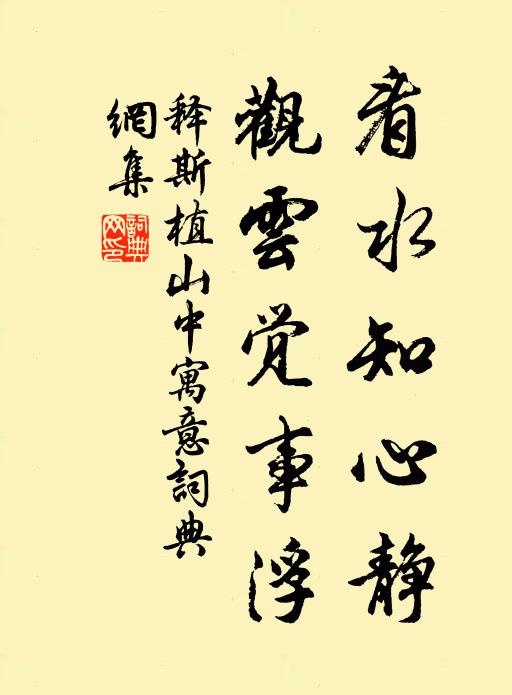 看水知心静
觀雲觉事浮
释斯植山中寓意詞典
網集
詞典網印